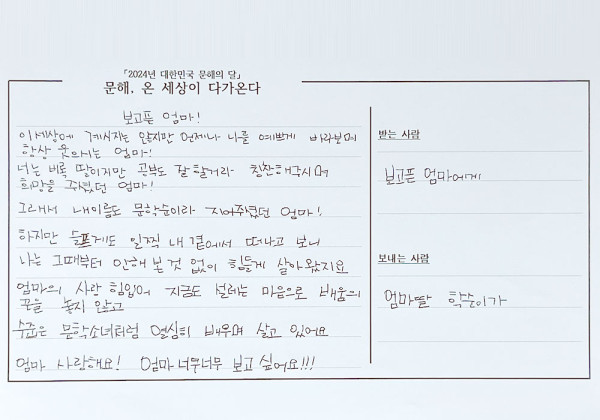 「2024년 대한민국 문해의 달」
문해, 온 세상이 다가온다
보고픈 엄마!
이세상에 계시지는 않지만 언제나 나를 예쁘게 바라보며
항상 웃으시는 엄마!
너는 비록 딸이지만 공부도 잘 할거라 칭찬해주시며
희망을 주셨던 엄마!
그래서 내이름도 문학순이라 지어주셨던 엄마!
하지만 슬프게도 일찍 내 곁에서 떠나고 보니
나는 그때부터 안해 본 것 없이 힘들게 살아왔지요
엄마의 사랑 힘입어 지금도 설레는 마음으로 배움의
끈을 놓지 않고
수준은 문학소녀처럼 열심히 배우며 살고 있어요
엄마 사랑해요! 엄마 너무너무 보고 싶어요!!!
받는 사람
보고픈 엄마에게
보내는 사람
엄마딸 학순이가